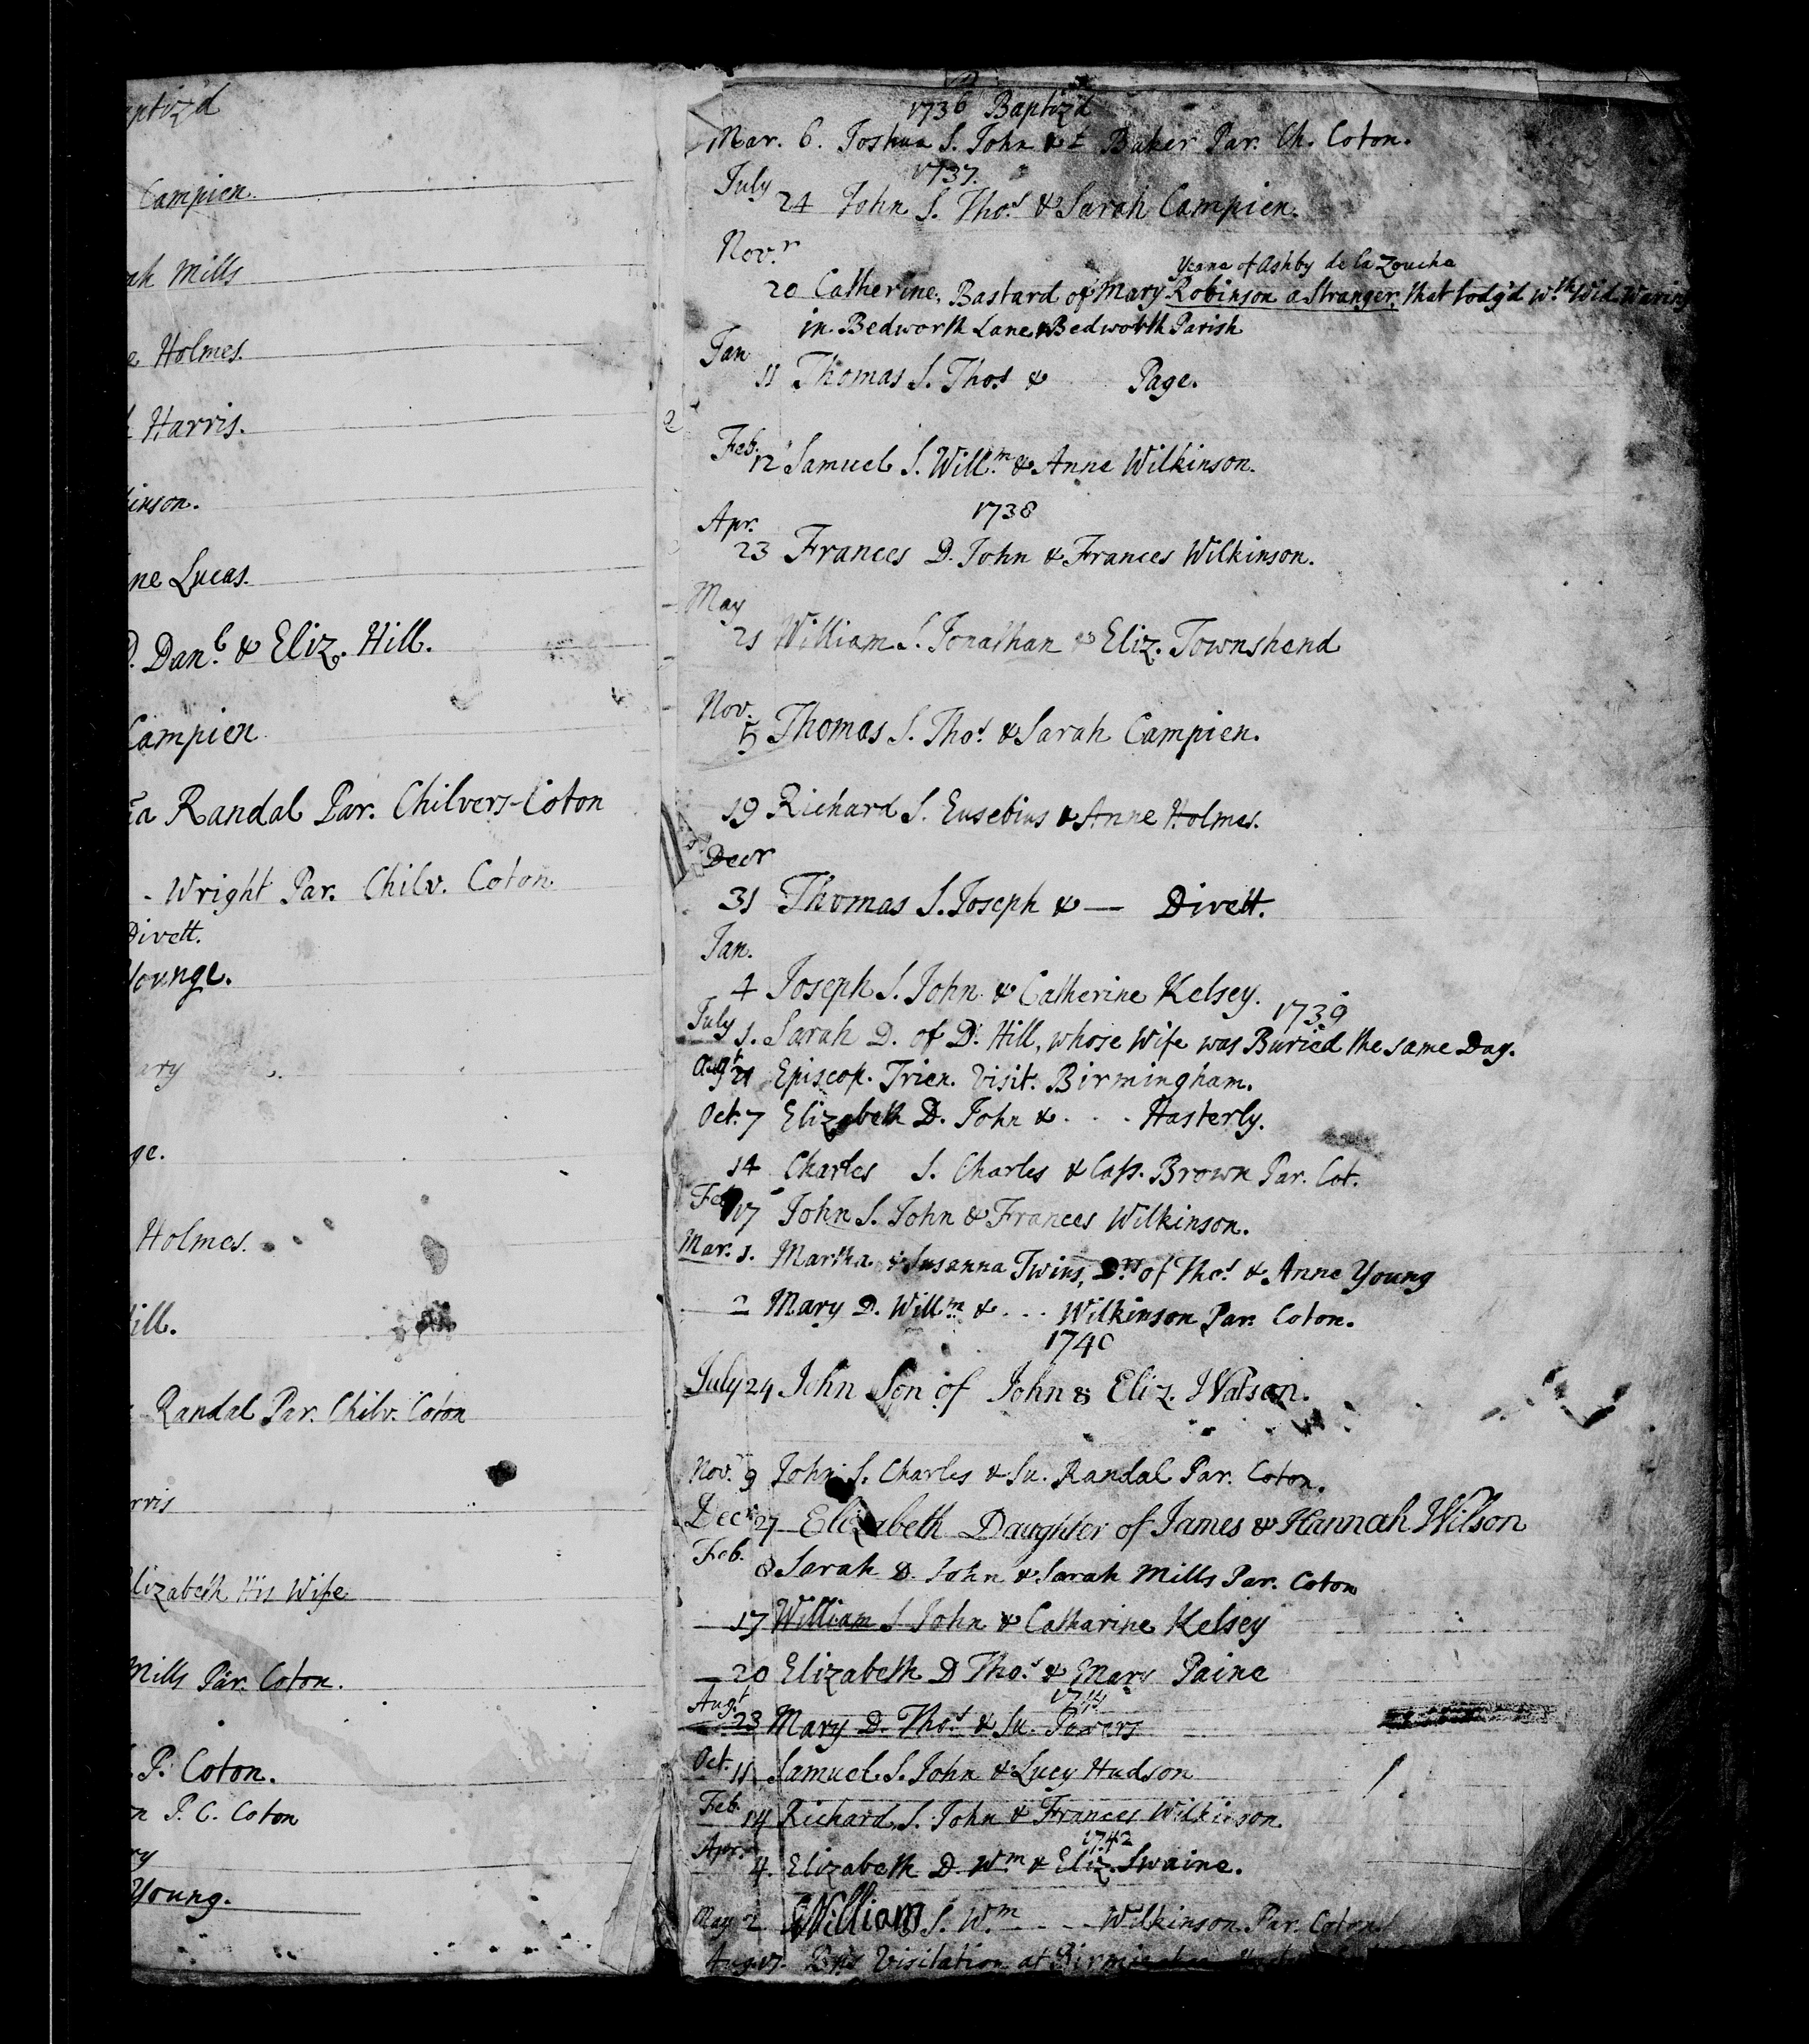 ptiz'd
Campien.
ah Mills
e Holmes.
Harris.
kinson.
ne Lucas.
D. Dan.l & Eliz. Hill.
Campien
Randal Par. Chilvers-Coton
- Wright Par. Chilv. Coton
Divett.
Younge.
ary
ge.
Holmes.
ill.
Randal Par. Chilv. Coton
rris
lizabeth His Wife
Mills Par. Coton.
P. Coton.
n P. C. Coton
ry
Young.
1736 Baptiz'd
Mar. 6. Joshua S. John & Baker Par. Ch. Coton.
1737.
July
24 John S. Tho.s & Sarah Campien.
Nov.r
of Ashby de la Zouche
20 Catherine, Bastard of Mary Robinson a Stranger, that lodg'd w.th Wid. Waring
in Bedworth Lane Bedworth Parish
Jan
11 Thomas S. Tho.s & Page.
Feb.
12 Samuel S. Will.m & Anne Wilkinson.
1738
Apr.
23 Frances D. John & Frances Wilkinson.
May
21 William S. Jonathan & Eliz. Townshend
Nov.
5 Thomas S. Tho.s & Sarah Campien.
19 Richard S. Eusebius & Anne Holmes.
Decr
31 Thomas S. Joseph & — Divett.
Jan.
4 Joseph S. John & Catherine Kelsey.
1739
July 1. Sarah D. of D. Hill, whose Wife was Buried the same Day.
Augt 21 Episcop. Trien. Visit. Birmingham.
Oct. 7 Elizabeth D. John & . . . Hasterly.
14 Charles S. Charles & Cass. Brown Par. Cot.
Feb 17 John S. John & Frances Wilkinson.
Mar. 1. Martha & Susanna Twins, Drs of Tho.s & Anne Young
2 Mary D. Will.m & . . . Wilkinson Par. Coton.
1740
July 24 John Son of John & Eliz. Watson.
Nov.r 9 John S. Charles & Su. Randal Par. Coton.
Decr 27 Elizabeth Daughter of James & Hannah Wilson
Feb. 8 Sarah D. John & Sarah Mills Par. Coton
— 17 William S John & Catharine Kelsey
— 20 Elizabeth D Tho.s & Mary Paine
1741
Aug.t 23 Mary D. Tho.s & Su. Powers
Oct. 11 Samuel S. John & Lucy Hudson
Feb. 14 Richard S. John & Frances Wilkinson.
1742
Apr. 4. Elizabeth D. Wm & Eliz. Swaine.
May 2 William S. W.m - - - Wilkinson Par. Coton.
Aug. 17. Bps Visitation at Birmingham